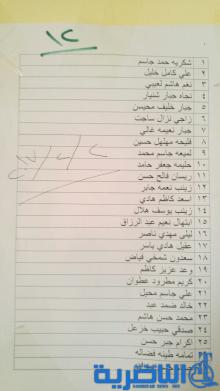 ١٢
١ شكريه حمد جاسم
٢ علي كامل خليل
٣ نعم هاشم نعيبي
٤ نجاه جبار شنيار
٥ جبار خليف محيسن
٦ زاجي نزال ساجت
٧ جبار نعيمه غالي
٨ فليحه مهلهل حسين
٩ لميعه جاسم محمد
١٠ حليمه جعفر حامد
١١ ريسان فالح حسن
١٢ زينب نعمه جابر
١٣ اسعد كاظم هادي
١٤ زينب يوسف هلال
١٥ ابتهال نعيم عبد الرزاق
١٦ ليلى مهدي ناصر
١٧ عقيل هادي ياسر
١٨ سعدون شمخي فياض
١٩ وعد عزيز كاظم
٢٠ كريم مطرود عطوان
٢١ علي جاسم محيل
٢٢ خالد ضمد عبد
٢٣ محمد حسن هاشم
٢٤ صدقي حبيب خزعل
٢٥ اكرام جبر حسن
٢٦ تمامه طينه فضاله
الناصرية